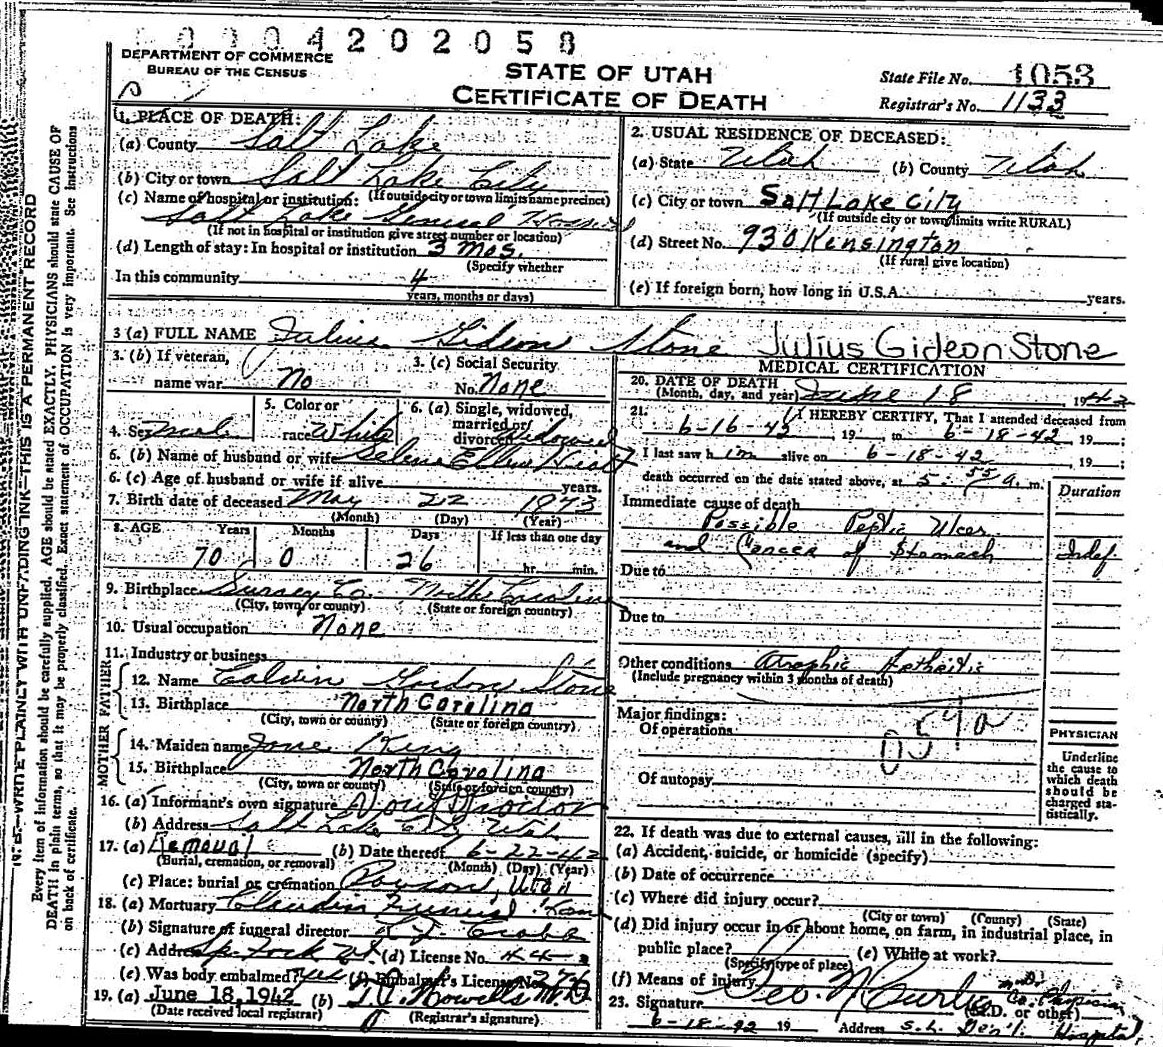 0004202058
DEPARTMENT OF COMMERCE
BUREAU OF THE CENSUS
STATE OF UTAH
CERTIFICATE OF DEATH
State File No. 1053
Registrar's No. 1133
N. B.—WRITE PLAINLY WITH UNFADING INK—THIS IS A PERMANENT RECORD
Every item of information should be carefully supplied. AGE should be stated EXACTLY. PHYSICIANS should state CAUSE OF
DEATH in plain terms, so that it may be properly classified. Exact statement of OCCUPATION is very important. See instructions
on back of certificate.
1. PLACE OF DEATH:
(a) County Salt Lake
(b) City or town Salt Lake City
(If outside city or town limits name precinct)
(c) Name of hospital or institution:
Salt Lake General Hospital
(If not in hospital or institution give street number or location)
(d) Length of stay: In hospital or institution 3 Mos.
(Specify whether
In this community 4
years, months or days)
2. USUAL RESIDENCE OF DECEASED:
(a) State Utah (b) County Utah
(c) City or town Salt Lake City
(If outside city or town limits write RURAL)
(d) Street No. 930 Kensington
(If rural give location)
(e) If foreign born, how long in U.S.A. years.
3 (a) FULL NAME Julius Gideon Stone Julius Gideon Stone
3. (b) If veteran,
name war No
3. (c) Social Security
No. None
4. Sex Male
5. Color or
race White
6. (a) Single, widowed,
married or
divorced Widowed
6. (b) Name of husband or wife Selena Ellen Hiatt
6. (c) Age of husband or wife if alive years.
7. Birth date of deceased May 22 1873
(Month) (Day) (Year)
8. AGE Years Months Days If less than one day
70 0 26 hr. min.
9. Birthplace Surrey Co. North Carolina
(City, town or county) (State or foreign country)
10. Usual occupation None
11. Industry or business
FATHER
12. Name Calvin Gordon Stone
13. Birthplace North Carolina
(City, town or county) (State or foreign country)
MOTHER
14. Maiden name Jane King
15. Birthplace North Carolina
(City, town or county) (State or foreign country)
16. (a) Informant's own signature Proctor
(b) Address Salt Lake City Utah
17. (a) Removal (b) Date thereof 6-22-42
(Burial, cremation, or removal) (Month) (Day) (Year)
(c) Place: burial or cremation Payson, Utah
18. (a) Mortuary Claudin Funeral Home
(b) Signature of funeral director
(c) Address Sp. Fork Ut. (d) License No. 44
(e) Was body embalmed? Yes (f) Embalmer's License No. 276
19. (a) June 18, 1942 (b) Howells M.D.
(Date received local registrar) (Registrar's signature)
MEDICAL CERTIFICATION
20. DATE OF DEATH
(Month, day, and year) June 18 1942
21. I HEREBY CERTIFY, That I attended deceased from
6-16-42, 19 to 6-18-42, 19 ;
I last saw h im alive on 6-18-42, 19 ;
death occurred on the date stated above, at 5:55 a. m.
Duration
Immediate cause of death
Possible Peptic Ulcer
and Cancer of Stomach Indef
Due to
Due to
Other conditions Atrophic Arthritis
(Include pregnancy within 3 months of death)
Major findings:
Of operations
Of autopsy
PHYSICIAN
Underline
the cause to
which death
should be
charged sta-
tistically.
22. If death was due to external causes, fill in the following:
(a) Accident, suicide, or homicide (specify)
(b) Date of occurrence
(c) Where did injury occur?
(City or town) (County) (State)
(d) Did injury occur in or about home, on farm, in industrial place, in
public place? (e) While at work?
(Specify type of place)
(f) Means of injury
23. Signature Geo. N Curtis M.D. Co. Physician
(M.D. or other)
6-18-42 19 Address S.L. Gen'l. Hospital.